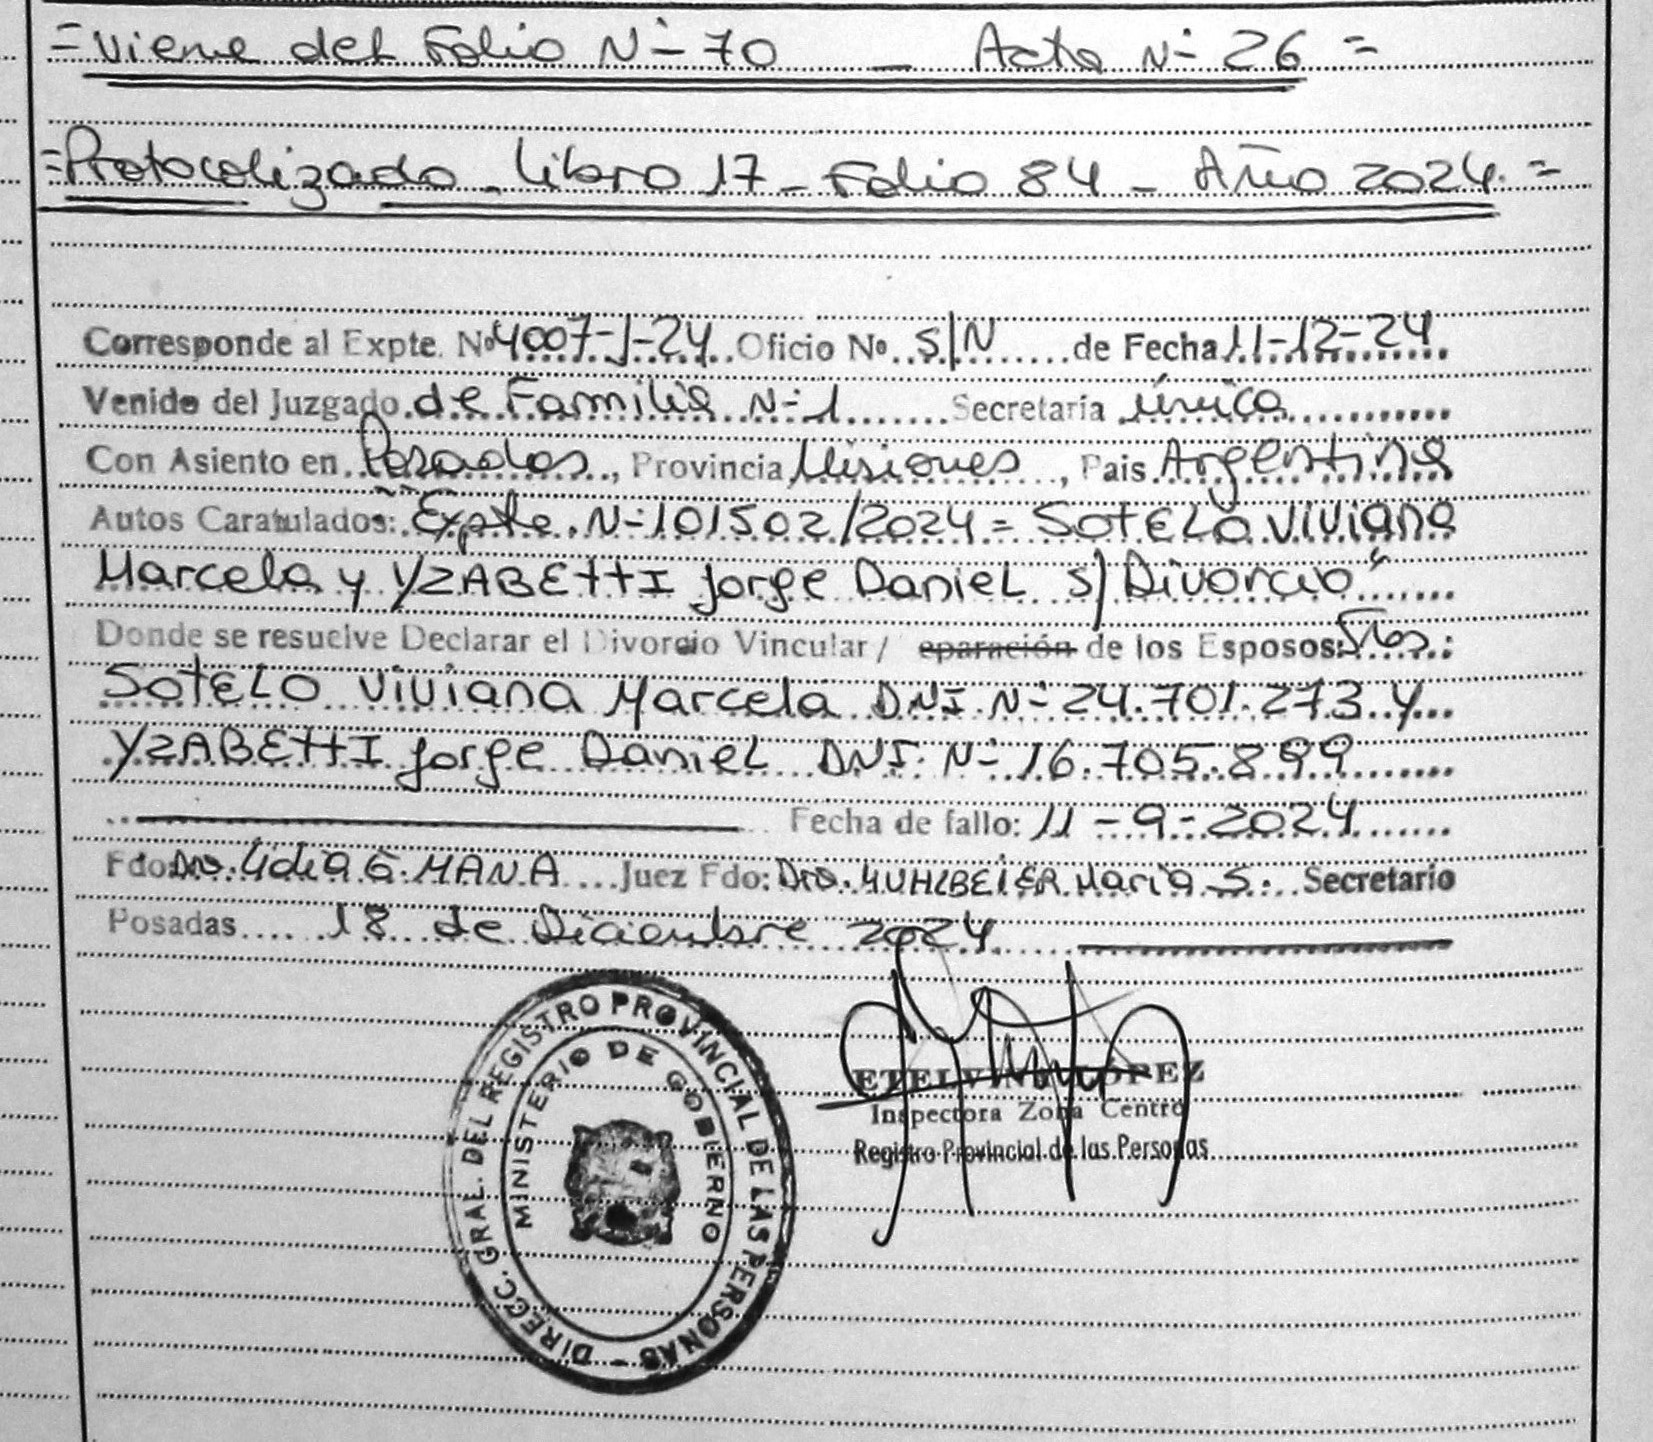 =Viene del Folio Nº 70 _ Acta Nº 26=
=Protocolizado - Libro 17 - Folio 84 - Año 2024.=
Corresponde al Expte. Nº 4007-J-24 Oficio Nº S/N de Fecha 11-12-24
Venido del Juzgado de Familia Nº 1 Secretaría única
Con Asiento en Posadas, Provincia Misiones, Pais Argentina
Autos Caratulados: Expte. Nº 101502/2024 = SOTELO Viviana
Marcela y YZABETTI Jorge Daniel s/ Divorcio"
Donde se resuelve Declarar el Divorcio Vincular / eparación de los Esposos: Sres.:
SOTELO Viviana Marcela DNI Nº 24.701.273 y
YZABETTI Jorge Daniel DNI Nº 16.705.899
Fecha de fallo: 11-9-2024
Fdo: Dra. Lidia G. MANA Juez Fdo: Dra. MUHLBEIER Maria S. Secretario
Posadas 18 de Diciembre 2024
DIRECC. GRAL. DEL REGISTRO PROVINCIAL DE LAS PERSONAS -
MINISTERIO DE GOBIERNO
ETELVINA LÓPEZ
Inspectora Zona Centro
Registro Provincial de las Personas